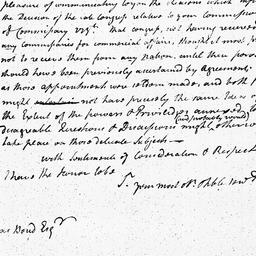 pleasure of communicating to you the reasons which
the decision of the late Congress relative to your Commission
of Commissary &c. That Congress, not having received
any commissaries for commercial affairs, thought it most
not to receive them from any nation, until their powers
should have been previously ascertained by Agreement.
as those appointments were seldom made, and both
might not have precisely the same Ideas of
the Extent of the powers & Privileges annexed
(and probably would)
disagreeable Questions & Discussions might otherwise
take place on those delicate Subjects—
with Sentiments of Consideration & Respect
I have the honor to be
Sr. your most Obt. & hble Servt
Bond Esqr